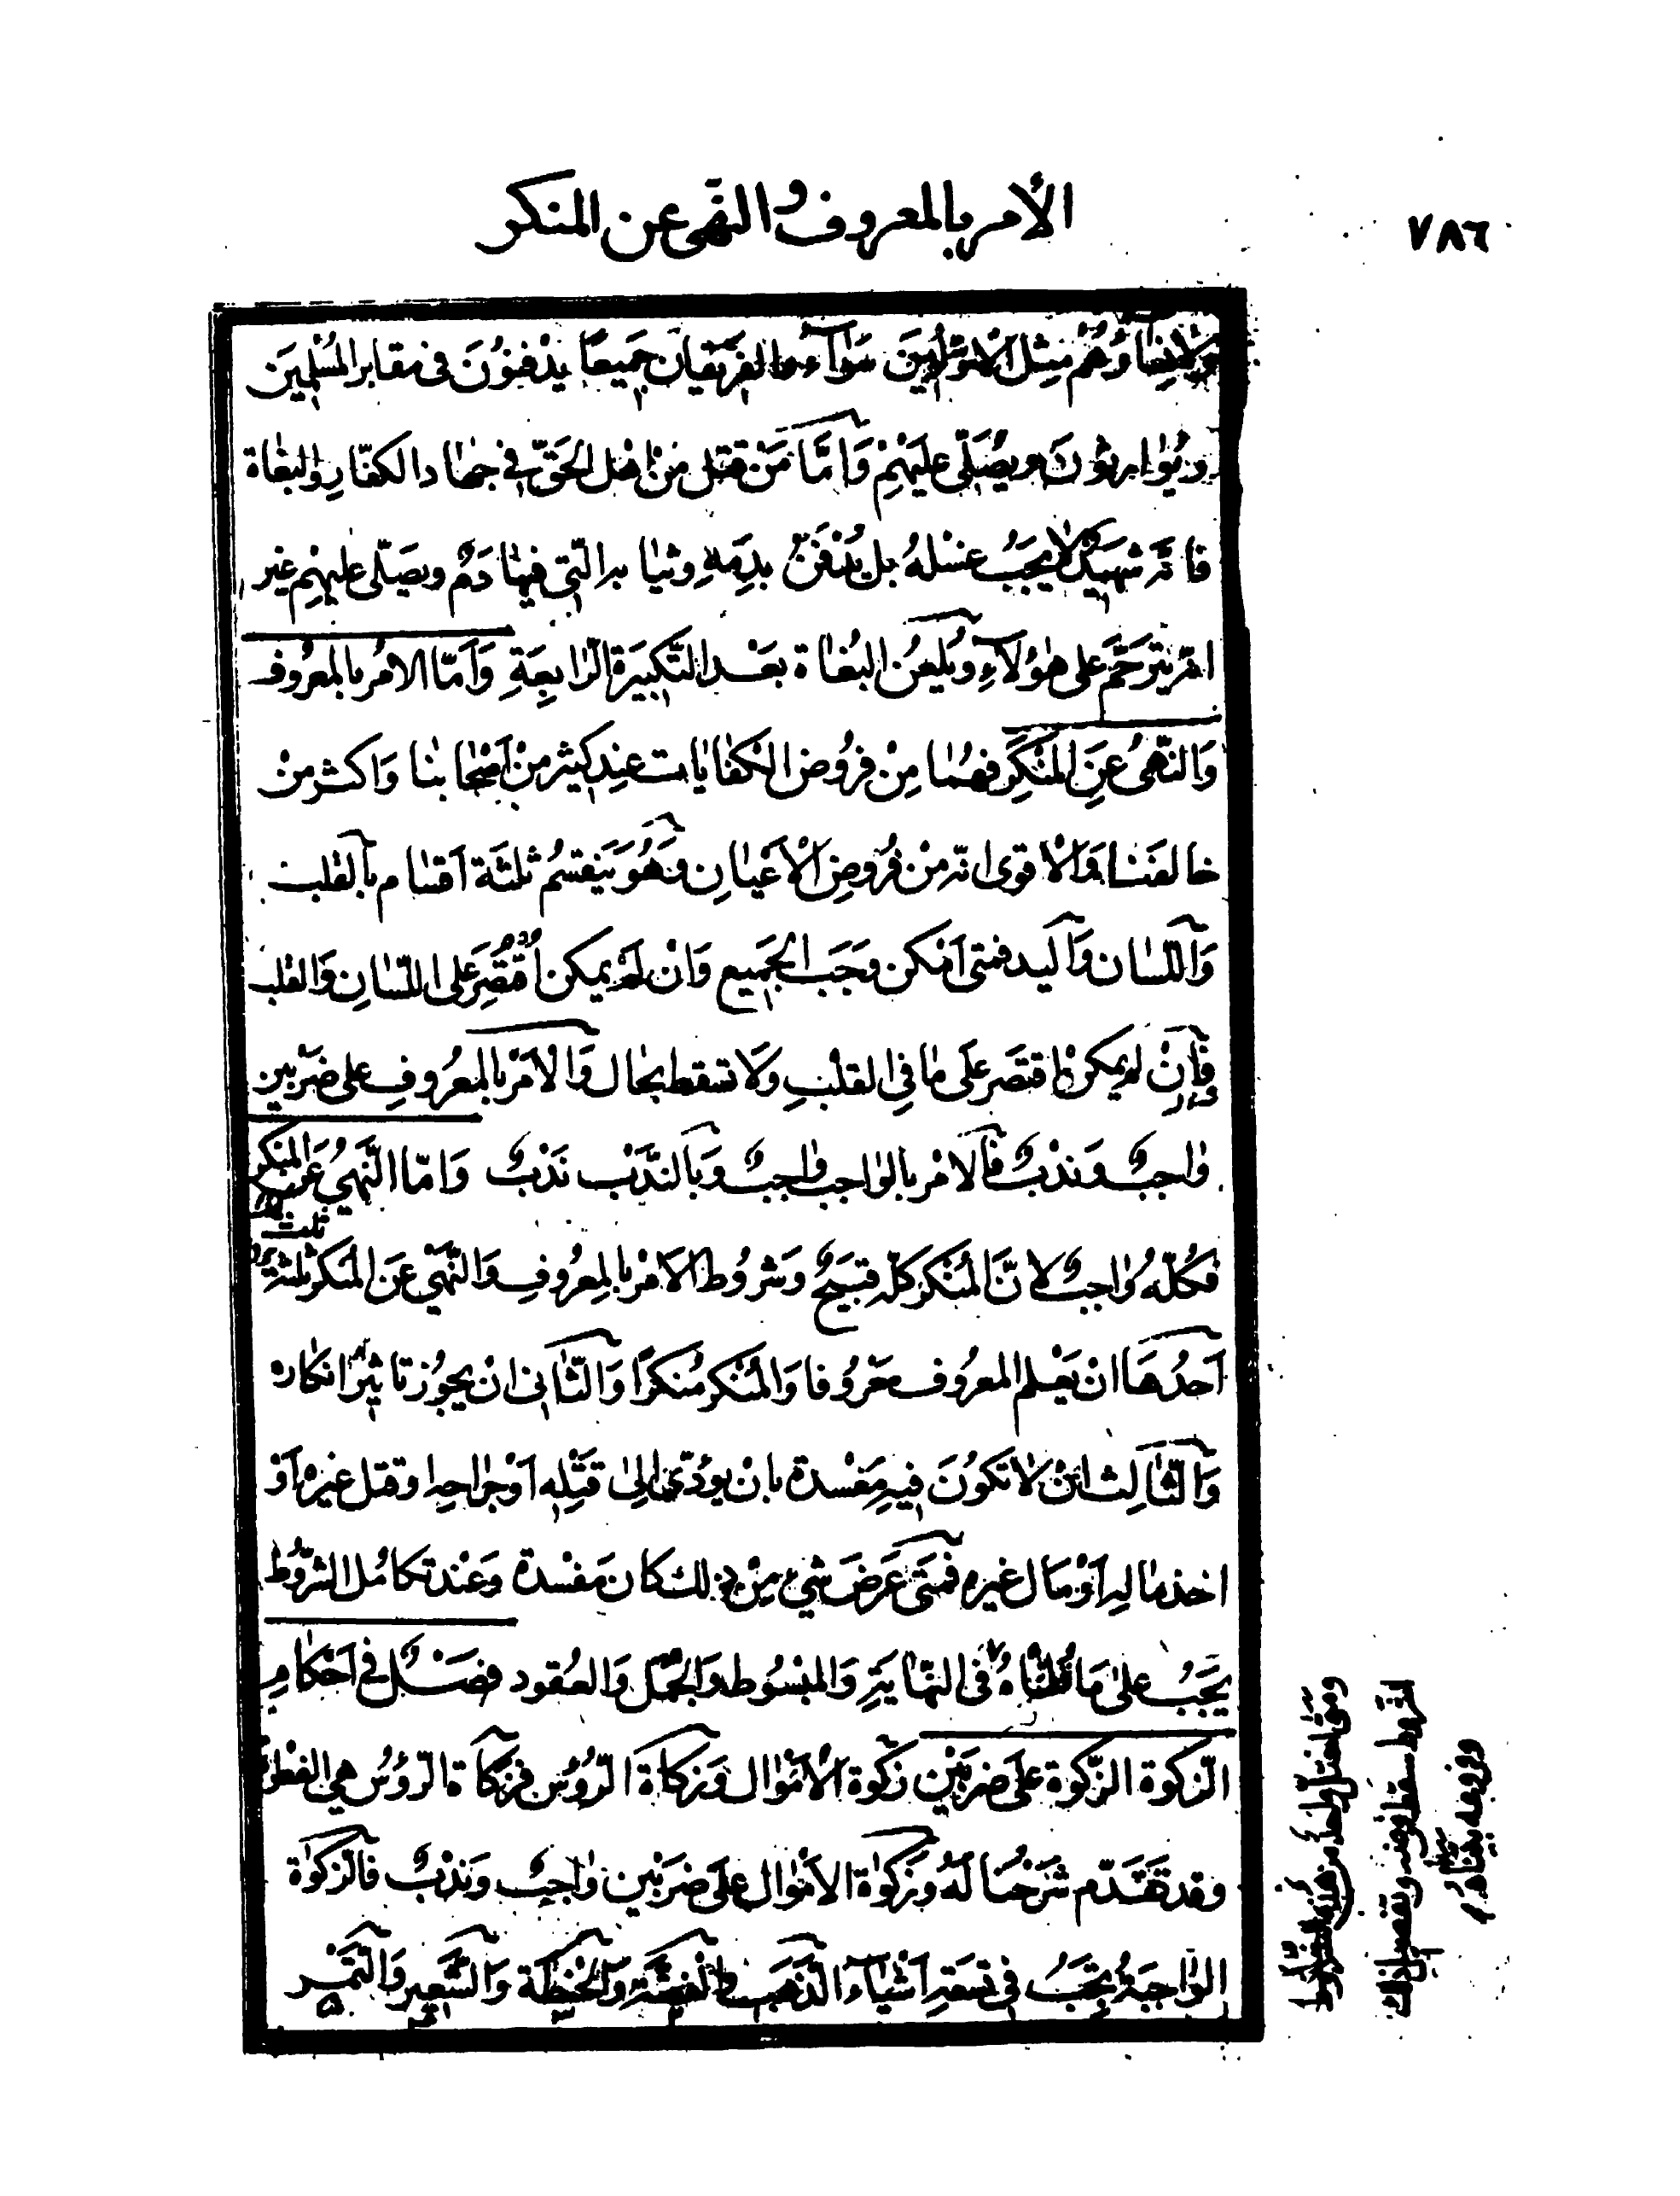 ٧٨٦
الأمر بالمعروف والنّهى عن المنكر
وهُم مِثل الاوّلين سَوآء والفريقان جَميعًا يدْفنُونَ فى مقابر المُسْلمِينَ
ويُوارثونَ ويُصَلّى عليْهِمْ وَأمّا مَنْ قتل مِنْ اهْل الحَقّ فى جهاد الكفّارِ والبغاة
فانّه شهيدٌ لا يجبُ غسْلهُ بل يُدْفَنُ بدِمَهِ وثيابه الّتى فيهَا دَمٌ ويصَلّى عليْهِم غير
انّه يترحّمُ على هٰؤُلآءِ ويُلعَنُ البُغاة بعْد التّكبيَرةِ الرّابِعَةِ وَأمّا الامْر بالمعْرُوف
وَالنّهىُ عَنِ المنْكَرِ فهُمَا مِنْ فروُض الكفايات عند كثير منْ اَصْحابنا وَاكثر منْ
خالفَنا وَالأقوى انّه مِنْ فُروُضِ الأعْيانِ وَهُوَ يَنقسُم ثلثَة اَقسٰام بالقلب
وَاللّسٰان وَاليد فمتى اَمْكن وَجَبَ الجَميع وَانْ لَمْ يمكن اُقْتُصِرَ عَلى اللّسٰانِ وَالقلب
فإنْ لم يمكن اقتصَر عَلى مٰا فى القلْبِ وَلا تسقط بحٰال وَالأمْر بالمعْرُوفِ على ضرْبين
وٰاجبٌ وَندْبٌ فالأمْر بالوٰاجب وٰاجبٌ وَبالنّدْب نَدْبٌ وَامّا النّهىُ عَن المنكر
فكُلّهُ وٰاجبٌ لانّ المُنْكر كلّه قبيَحٌ وَشرُوط الأمْر بالمعْرُوفِ وَالنّهْى عَن المنكر ثلثة
اَحدُهَا انْ يَعْلم المعرُوف مَعْرُوفا وَالمُنْكر مُنكرًا وَالثّانى انْ يجوُز تاثير انكاره
وَالثّالِث انْ لاٰ تكوُنَ فيهِ مَفْسدة بانْ يؤدّىَ الىٰ قتْلِه اَوْ جِراحه او قتل غيره اَوْ
اخذ ماله اَوْ مَال غيره فمَتىٰ عَرَضَ شيء مِنْ ذلك كان مَفْسدة وَعنْد تكامُل الشّروُط
يَجَبُ علىٰ مَا قُلْنٰاهُ فى النّهايَةِ وَالمبْسُوط وَالجُمَل وَالعُقود فصَلٌ فى اَحكٰام
الزكوة الزّكوة عَلى ضرْبَيْن زكوة الأمْوٰال وَزكاة الرُؤُس فزكاة الرّؤُس هى الفطرة
وقد تقَدّم شرْحُنا لَهٰا وَزكوٰة الأمْوٰال عَلى ضَرْبَيْن وٰاجبٌ وَندْبٌ فالزكوٰة
الوٰاجبَةُ تجَبُ فى تسعَةِ اَشْيآء الذّهَب والفضّة وَالحنْطَة وَالشّعير وَالتّمْر
ومتى اختلّ واحد من هذه الشروط
سقط فرضه وتفصيل ذلك
وفروعه بيّنّاهُ